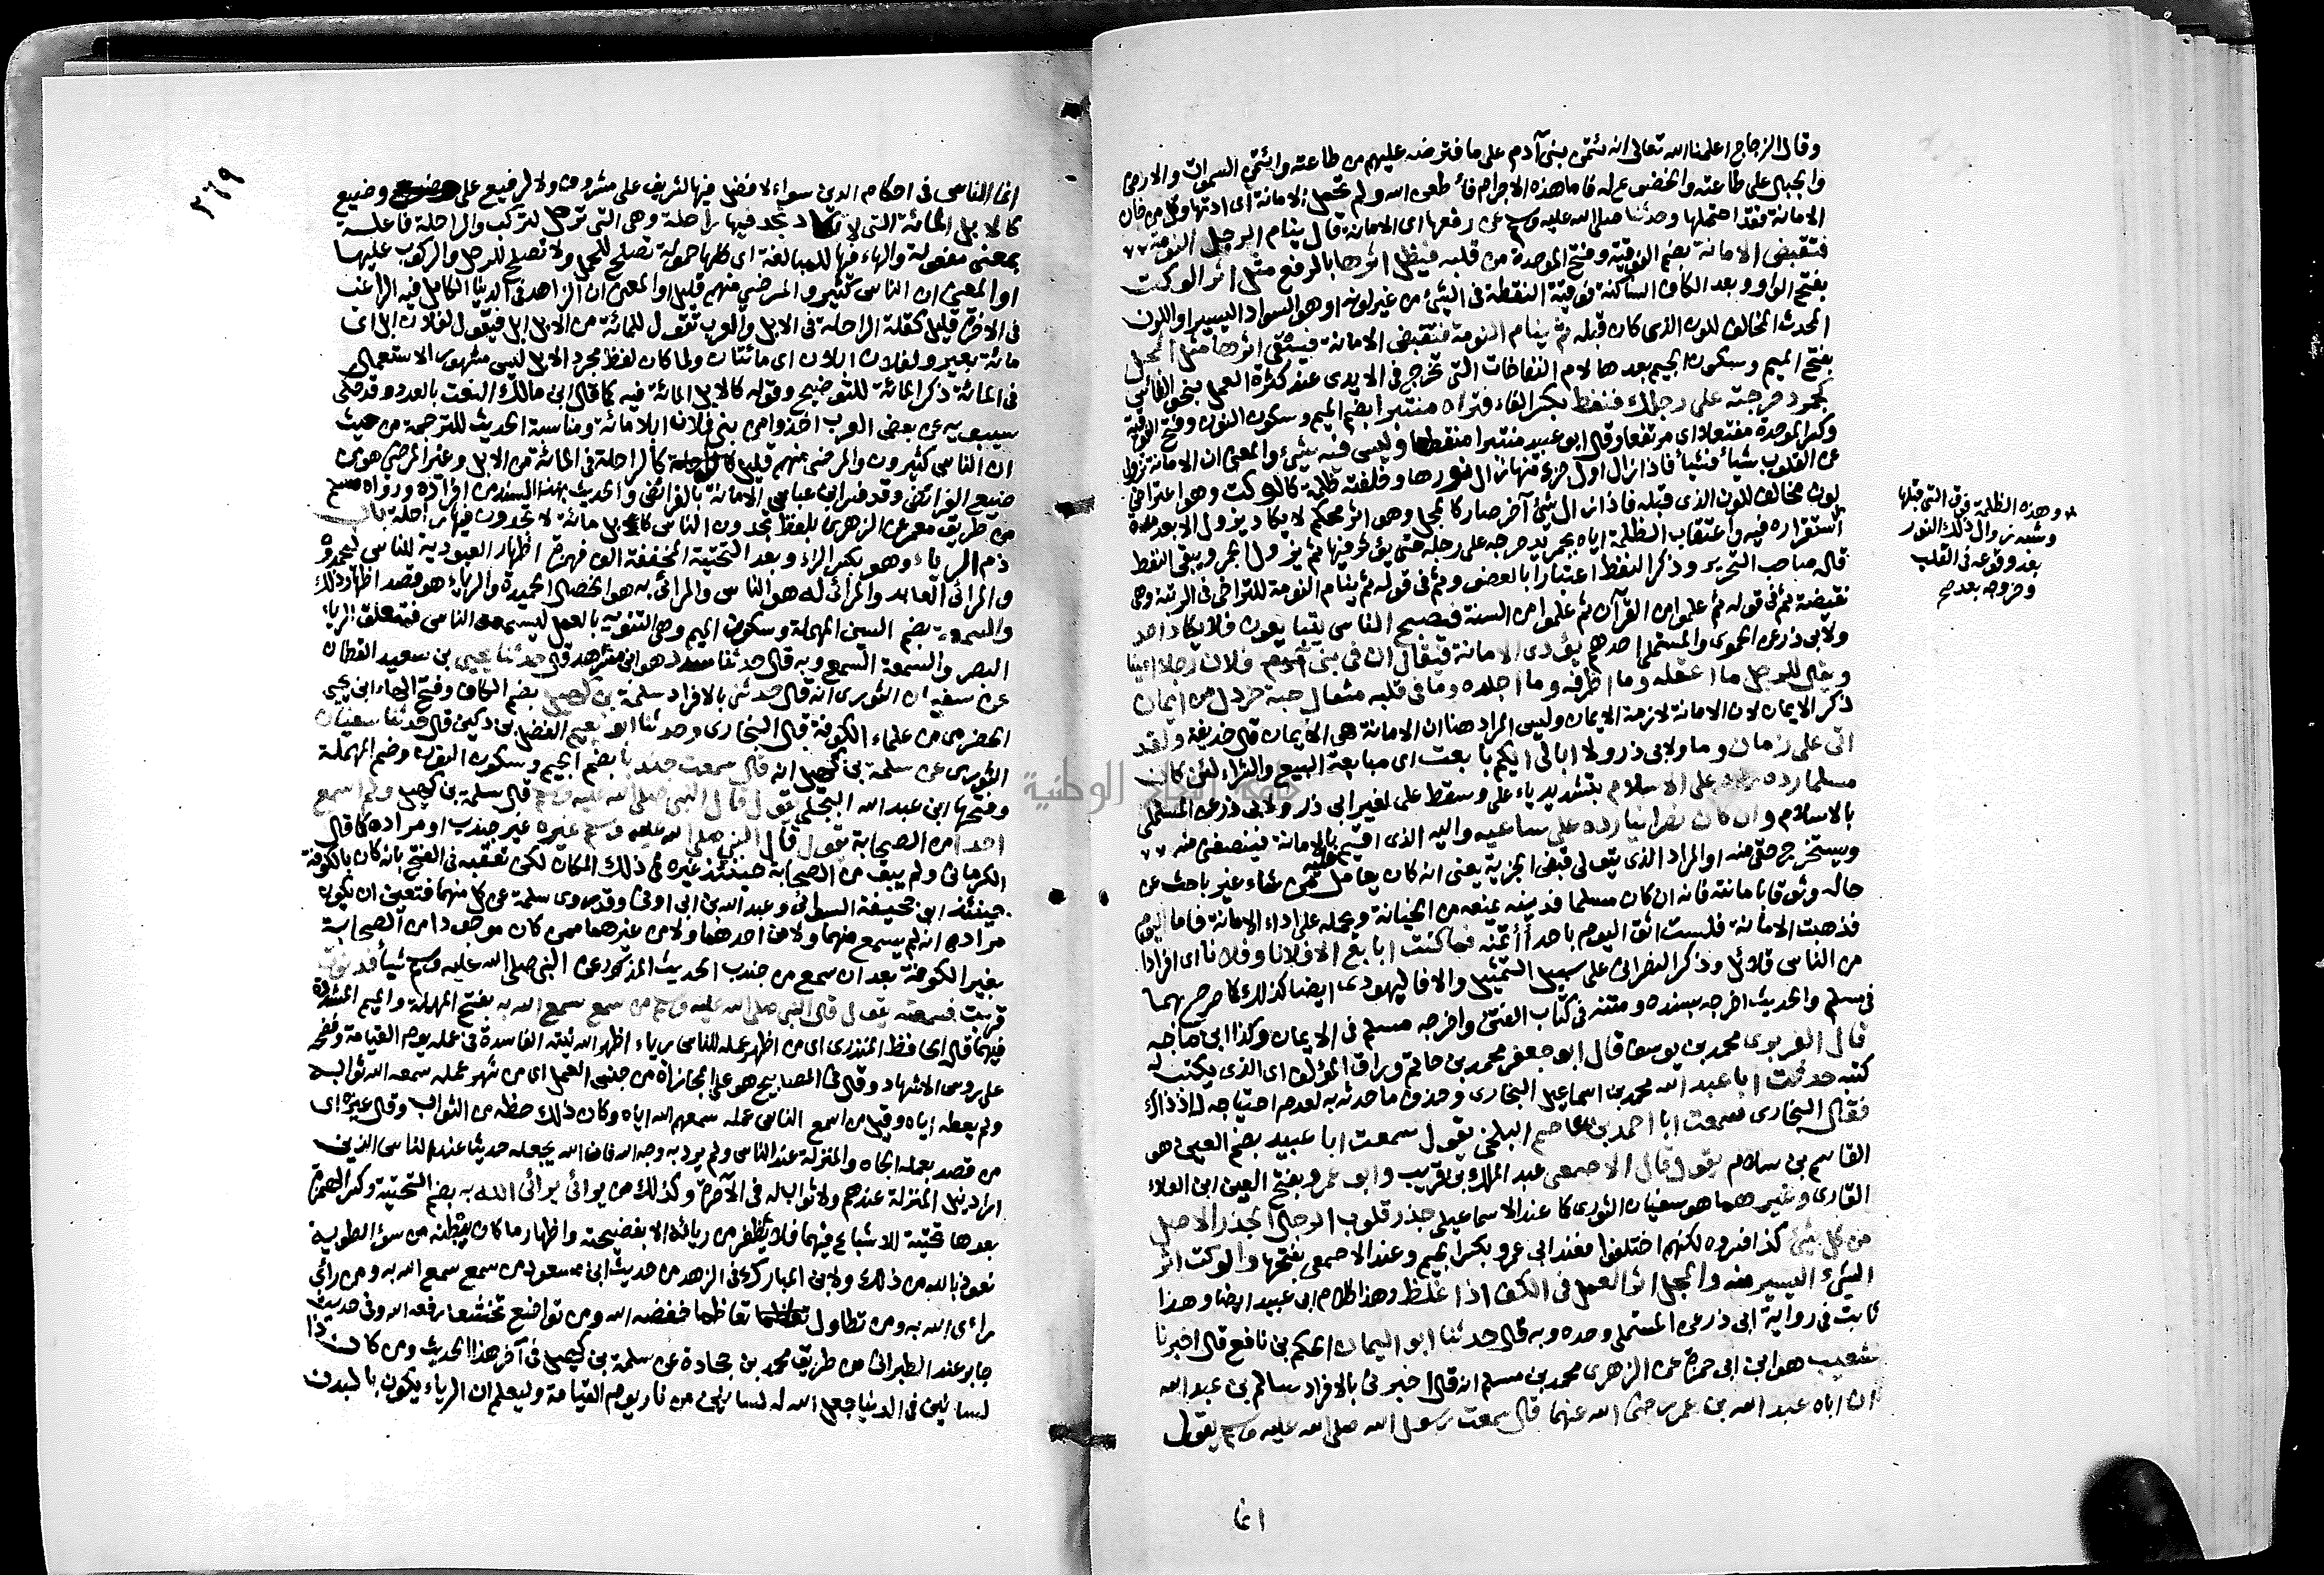 وقال الزجاج اعلمنا الله تعالى انه ائتمن بنى آدم على ما افترضه عليهم من طاعته وائتمن السموات والارض
والجبال على طاعته والخضوع له فاما هذه الاجرام فأطعن الله ولم تحمل الامانة اى ادتها وكل من خان
الامانة فقد احتملها وحدثنا صلى الله عليه وسلم عن رفعها اى الامانة قال ينام الرجل النومة
فتقبض الامانة بضم الفوقية وفتح الموحدة من قلبه فيظل اثرها بالرفع مثل اثر الوكت
بفتح الواو وبعد الكاف الساكنة فوقية النقطة فى الشئ من غير لونه او هو السواد اليسير او اللون
المحدث المخالف للون الذى كان قبله ثم ينام النومة فتقبض الامانة فيبقى اثرها مثل المجل
بفتح الميم وسكون الجيم بعدها لام النفاخات التى تخرج فى الايدى عند كثرة العمل بنحو الفاس
كجمر دحرجته على رجلك فنفط بكسر الفاء فتراه منتبرا بضم الميم وسكون النون وفتح الفوقية
وكسر الموحدة مفتعلا اى مرتفعا وقال ابو عبيد منتبرا منقطا وليس فيه شئ والمعنى ان الامانة تزول
عن القلوب شيأ فشيأ فاذا زال اول جزء منها زال نورها وخلفته ظلمة كالوكت وهو اعتراض
لون مخالف للون الذى قبله فاذا زال شئ آخر صار كالمجل وهو اثر محكم لا يكاد يزول الا بعد مدة
استقراره فيه واعتقاب الظلمة اياه بجمر يدحرجه على رجله حتى يؤثر فيها ثم يزول الجمر ويبقى النفط
قاله صاحب التحرير وذكر النفط اعتبارا بالعضو وثم فى قوله ثم ينام النومة للتراخى فى الرتبة وهى
نقيضة ثم فى قوله ثم علموا من القرآن ثم علموا من السنة فيصبح الناس يتبايعون فلا يكاد احد
ولابى ذر عن الحموى والمستملى احدهم يؤدى الامانة فيقال ان فى بنى فلان رجلا امينا
ويقال للرجل ما اعقله وما اظرفه وما اجلده وما فى قلبه مثقال حبة خردل من ايمان
ذكر الايمان لان الامانة لازمة الايمان وليس المراد هنا ان الامانة هى الايمان قال حذيفة ولقد
اتى على زمان وما ولابى ذر ولا ابالى ايكم بايعت اى مبايعة البيع والشراء لئن كان
مسلما رده على الاسلام بتشديد ياء على وسقط على لغير ابى ذر ولابى ذر عن المستملى
بالاسلام وان كان نصرانيا رده على ساعيه واليه الذى اقيم عليه بالامانة فينصفنى منه
ويستخرج حقى منه او المراد الذى يتولى قبض الجزية يعنى انه كان يعامل من شاء غير باحث عن
حاله وثوقا بامانته فانه ان كان مسلما فدينه يمنعه من الخيانة ويحمله على اداء الامانة فاما اليوم
فذهبت الامانة فلست اثق اليوم باحد أأتمنه فما كنت ابايع الا فلانا وفلانا اى افرادا
من الناس قلائل وذكر النصرانى على سبيل التمثيل والا فاليهودى ايضا كذلك كما صرح بهما
فى مسلم والحديث اخرجه بسنده ومتنه فى كتاب الفتن واخرجه مسلم فى الايمان وكذا ابن ماجه
قال الفربرى محمد بن يوسف قال ابو جعفر محمد بن حاتم وراق المؤلف اى الذى يكتب له
كتبه حدثت ابا عبد الله محمد بن اسماعيل البخارى وحذف ما حدثه به لعدم احتياجه له اذ ذاك
فقال البخارى سمعت ابا احمد بن عاصم البلخى يقول سمعت ابا عبيد بضم العين هو
القاسم بن سلام يقول قال الاصمعى عبد الملك بن قريب وابو عمرو بفتح العين ابن العلاء
القارى وغيرهما هو سفيان الثورى كما عند الاسماعيلى جذر قلوب الرجال الجذر الاصل
من كل شئ كذا فسروه لكنهم اختلفوا فعند ابى عمرو بكسر الجيم وعند الاصمعى بفتحها والوكت اثر
الشئ اليسير منه والمجل اثر العمل فى الكف اذا غلظ وهذا كلام ابى عبيد ايضا وهذا
ثابت فى رواية ابى ذر عن المستملى وحده وبه قال حدثنا ابو اليمان الحكم بن نافع قال اخبرنا
شعيب هو ابن ابى حمزة عن الزهرى محمد بن مسلم انه قال اخبرنى بالافراد سالم بن عبد الله
ان اباه عبد الله بن عمر رضى الله عنهما قال سمعت رسول الله صلى الله عليه وسلم يقول
انما
وهذه الظلمة فوق التى قبلها
وشبه زوال ذلك النور
بعد وقوعه فى القلب
وخروجه بعد صح
٣٦٩
انما الناس فى احكام الدين سواء لا فضل فيها لشريف على مشروف ولا لرفيع على وضيع
كالابل المائة التى لا تكاد تجد فيها راحلة وهى التى ترحل لتركب والراحلة فاعلة
بمعنى مفعولة والهاء فيها للمبالغة اى كلها حمولة تصلح للحمل ولا تصلح للرحل والركوب عليها
او المعنى ان الناس كثير والمرضي منهم قليل او المعنى ان الزاهد فى الدنيا الكامل فيه الراغب
فى الآخرة قليل كقلة الراحلة فى الابل والعرب تقول للمائة من الابل ابل فيقول لفلان ابل اى
مائة بعير ولفلان ابلان اى مائتان ولما كان لفظ مجرد الابل ليس مشهور الاستعمال
فى المائة ذكر المائة للتوضيح وقوله كالابل المائة فيه كما قال ابن مالك النعت بالعدد وقد حكى
سيبويه عن بعض العرب اخذوا من بنى فلان ابلا مائة ومناسبة الحديث للترجمة من حيث
ان الناس كثيرون والمرضى منهم قليل كالراحلة فى المائة من الابل وغير المرضى هو من
ضيع الفرائض وقد فسر ابن عباس الامانة بالفرائض والحديث بهذا السند من افراده ورواه مسلم
من طريق معمر عن الزهرى بلفظ تجدون الناس كابل مائة لا تجدون فيها راحلة باب
ذم الرياء وهو بكسر الراء وبعد التحتية المخففة الف فهمزة اظهار العبودية للناس ليحمدوه
والمرائى العابد والمرائى له هو الناس والمرائى به هو الخصال الحميدة والرياء هو قصد اظهار ذلك
والسمعة بضم السين المهملة وسكون الميم وهى التنويه بالعمل ليسمعه الناس فمتعلق الرياء
البصر والسمعة السمع وبه قال حدثنا مسدد هو ابن مسرهد قال حدثنا يحيى بن سعيد القطان
عن سفيان الثورى انه قال حدثنى بالافراد سلمة بن كهيل بضم الكاف وفتح الهاء ابن يحيى
الحضرمى من علماء الكوفة قال البخارى وحدثنا ابو نعيم الفضل بن دكين قال حدثنا سفيان
الثورى عن سلمة بن كهيل انه قال سمعت جندبا بضم الجيم وسكون النون وضم المهملة
وفتحها ابن عبد الله البجلى يقول قال النبى صلى الله عليه وسلم قال سلمة بن كهيل ولم اسمع
احدا من الصحابة يقول قال النبى صلى الله عليه وسلم غيره غير جندب او مراده كما قال
الكرمانى ولم يبق من الصحابة حينئذ غيره فى ذلك المكان لكن تعقبه فى الفتح بانه كان بالكوفة
حينئذ ابو جحيفة السوائى وعبد الله بن ابى اوفى وقد روى سلمة عن كل منهما فتعين ان يكون
مراده انه لم يسمع منهما ولا من احدهما ولا من غيرهما ممن كان موجودا من الصحابة
بغير الكوفة بعد ان سمع من جندب الحديث المذكور عن النبى صلى الله عليه وسلم شيأ فدنوت
قربت فسمعته يقول قال النبى صلى الله عليه وسلم من سمع سمع الله به بفتح المهملة والميم المشددة
فيهما قال الحافظ المنذرى اى من اظهر عمله للناس رياء اظهر الله نيته الفاسدة فى عمله يوم القيامة وفضحه
على رؤس الاشهاد وقال فى المصابيح هو على المجازاة من جنس العمل اى من شهر عمله سمعه الله ثوابه
ولم يعطه اياه وقيل من اسمع الناس عمله سمعهم الله اياه وكان ذلك حظه من الثواب وقال غيره اى
من قصد بعمله الجاه والمنزلة عند الناس ولم يرد به وجه الله فان الله يجعله حديثا عند الناس الذين
اراد نيل المنزلة عندهم ولا ثواب له فى الآخرة وكذلك من يرائى يرائى الله به بضم التحتية وكسر الهمزة
بعدها تحتية للاشباع فيهما فلا يظفر من ريائه الا بفضيحته واظهار ما كان يبطنه من سوء الطوية
نعوذ بالله من ذلك ولابن المبارك فى الزهد من حديث ابن مسعود من سمع سمع الله به ومن رائى
راءى الله به ومن تطاول تعاظما خفضه الله ومن تواضع تخشعا رفعه الله وفى حديث
جابر عند الطبرانى من طريق محمد بن جحادة عن سلمة بن كهيل فى آخر هذا الحديث ومن كان ذا
لسانين فى الدنيا جعل الله له لسانين من نار يوم القيامة وليعلم ان الرياء يكون بالبدن
جامعة النجاح الوطنية